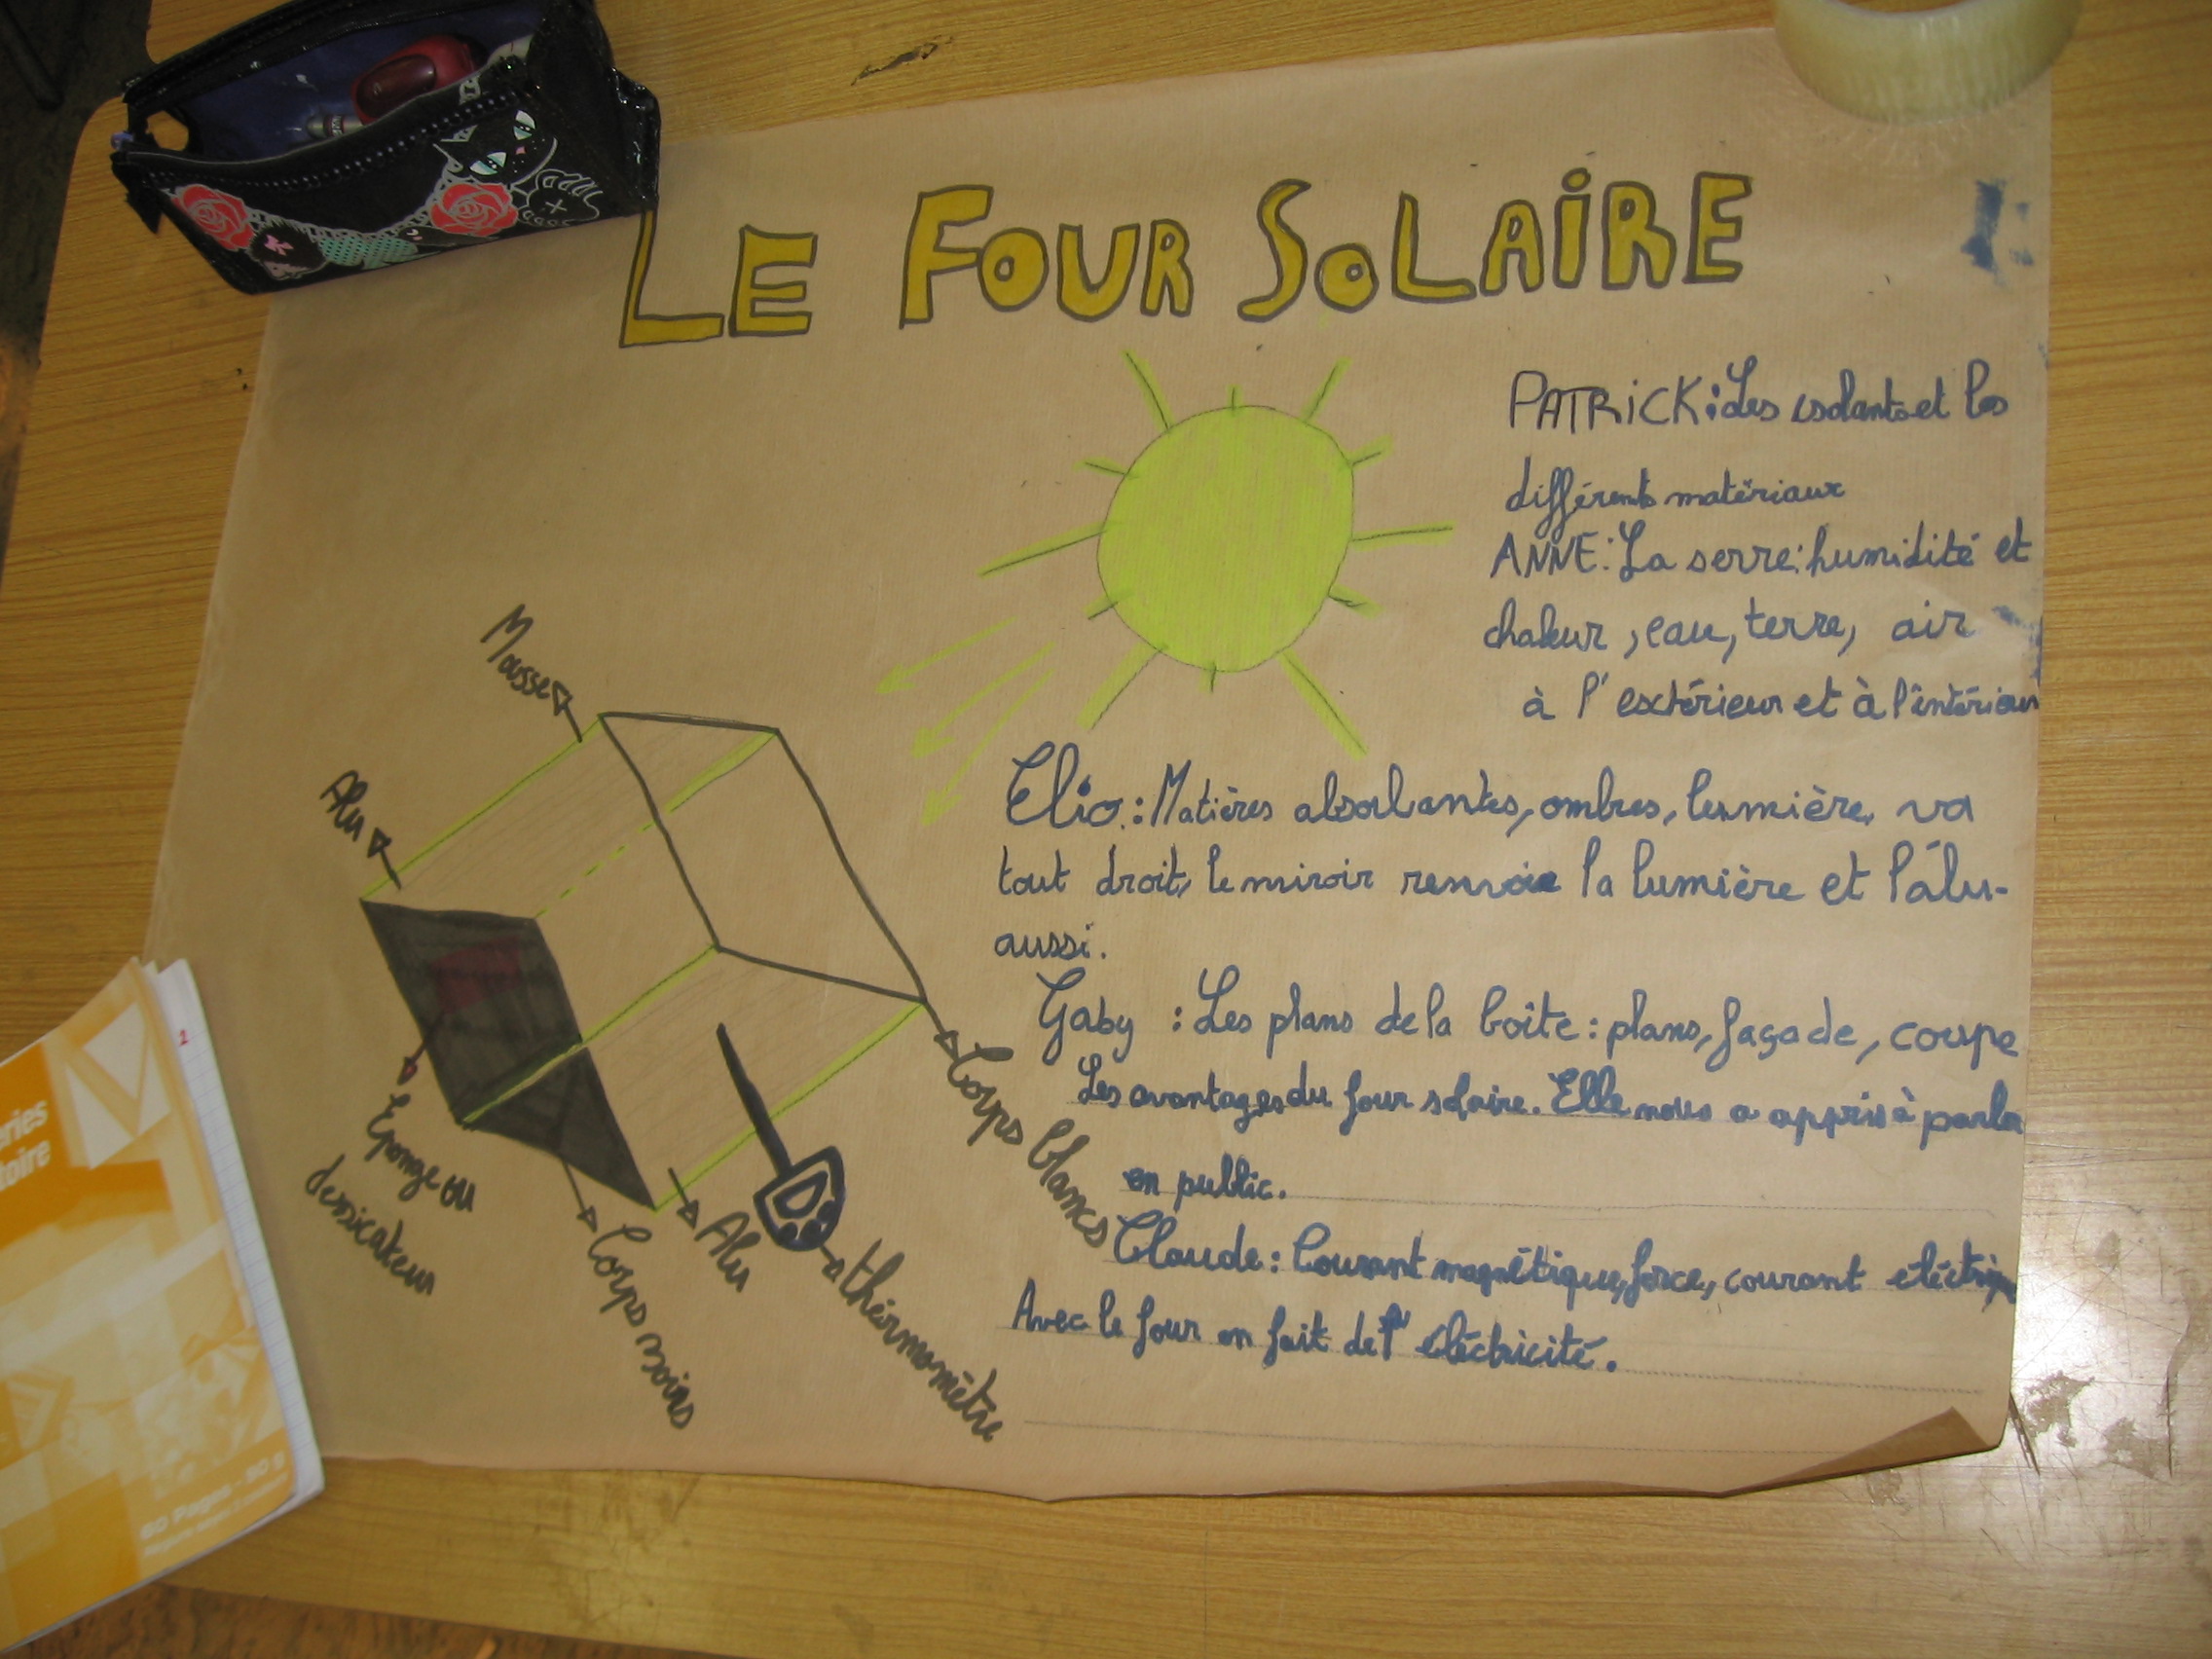 LE FOUR SOLAIRE
PATRICK : Les isolants et les
différents matériaux
ANNE : La serre : humidité et
chaleur, eau, terre, air
à l'extérieur et à l'intérieur
Elio : Matières absorbantes, ombres, lumière, va
tout droit, le miroir renvoie la lumière et l'alu-
aussi.
Gaby : Les plans de la boîte : plans, façade, coupe
Les avantages du four solaire. Elle nous a appris à parler
en public.
Claude : Courant magnétique, force, courant éléctrique
Avec le four on fait de l' éléctricité.
Mousse
Alu
Eponge ou
dessicateur
Corps noirs
Alu
thérmomètre
Corps blancs
2
60 Pages - 90 g